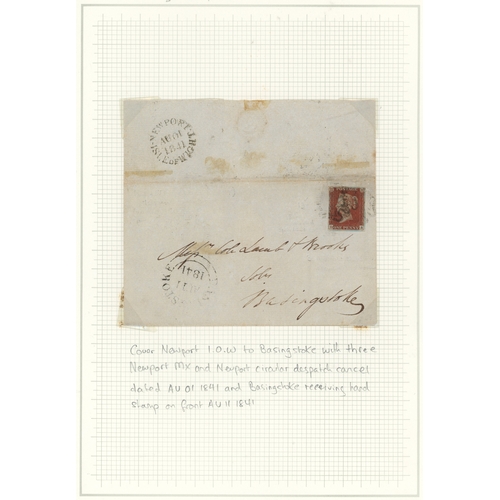 NEWPORT
AU 01
1841
ISLE OF WIGHT
Cole Lamb & Brooks
Basingstoke
1841
Cover Newport I.O.W to Basingstoke with three
Newport MX and Newport circular despatch cancel
dated AU 01 1841 and Basingstoke receiving hand
stamp on front AU 11 1841